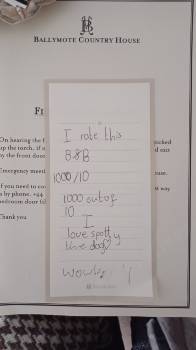 BALLYMOTE COUNTRY HOUSE
On hearing the
up the torch. If
by the front door
Emergency meeti
If you need to co
s by phone. +94
bedroom door
Thank you
I rate this
B&B
1000/10
1000 out of
10
I
love spotty
the dog